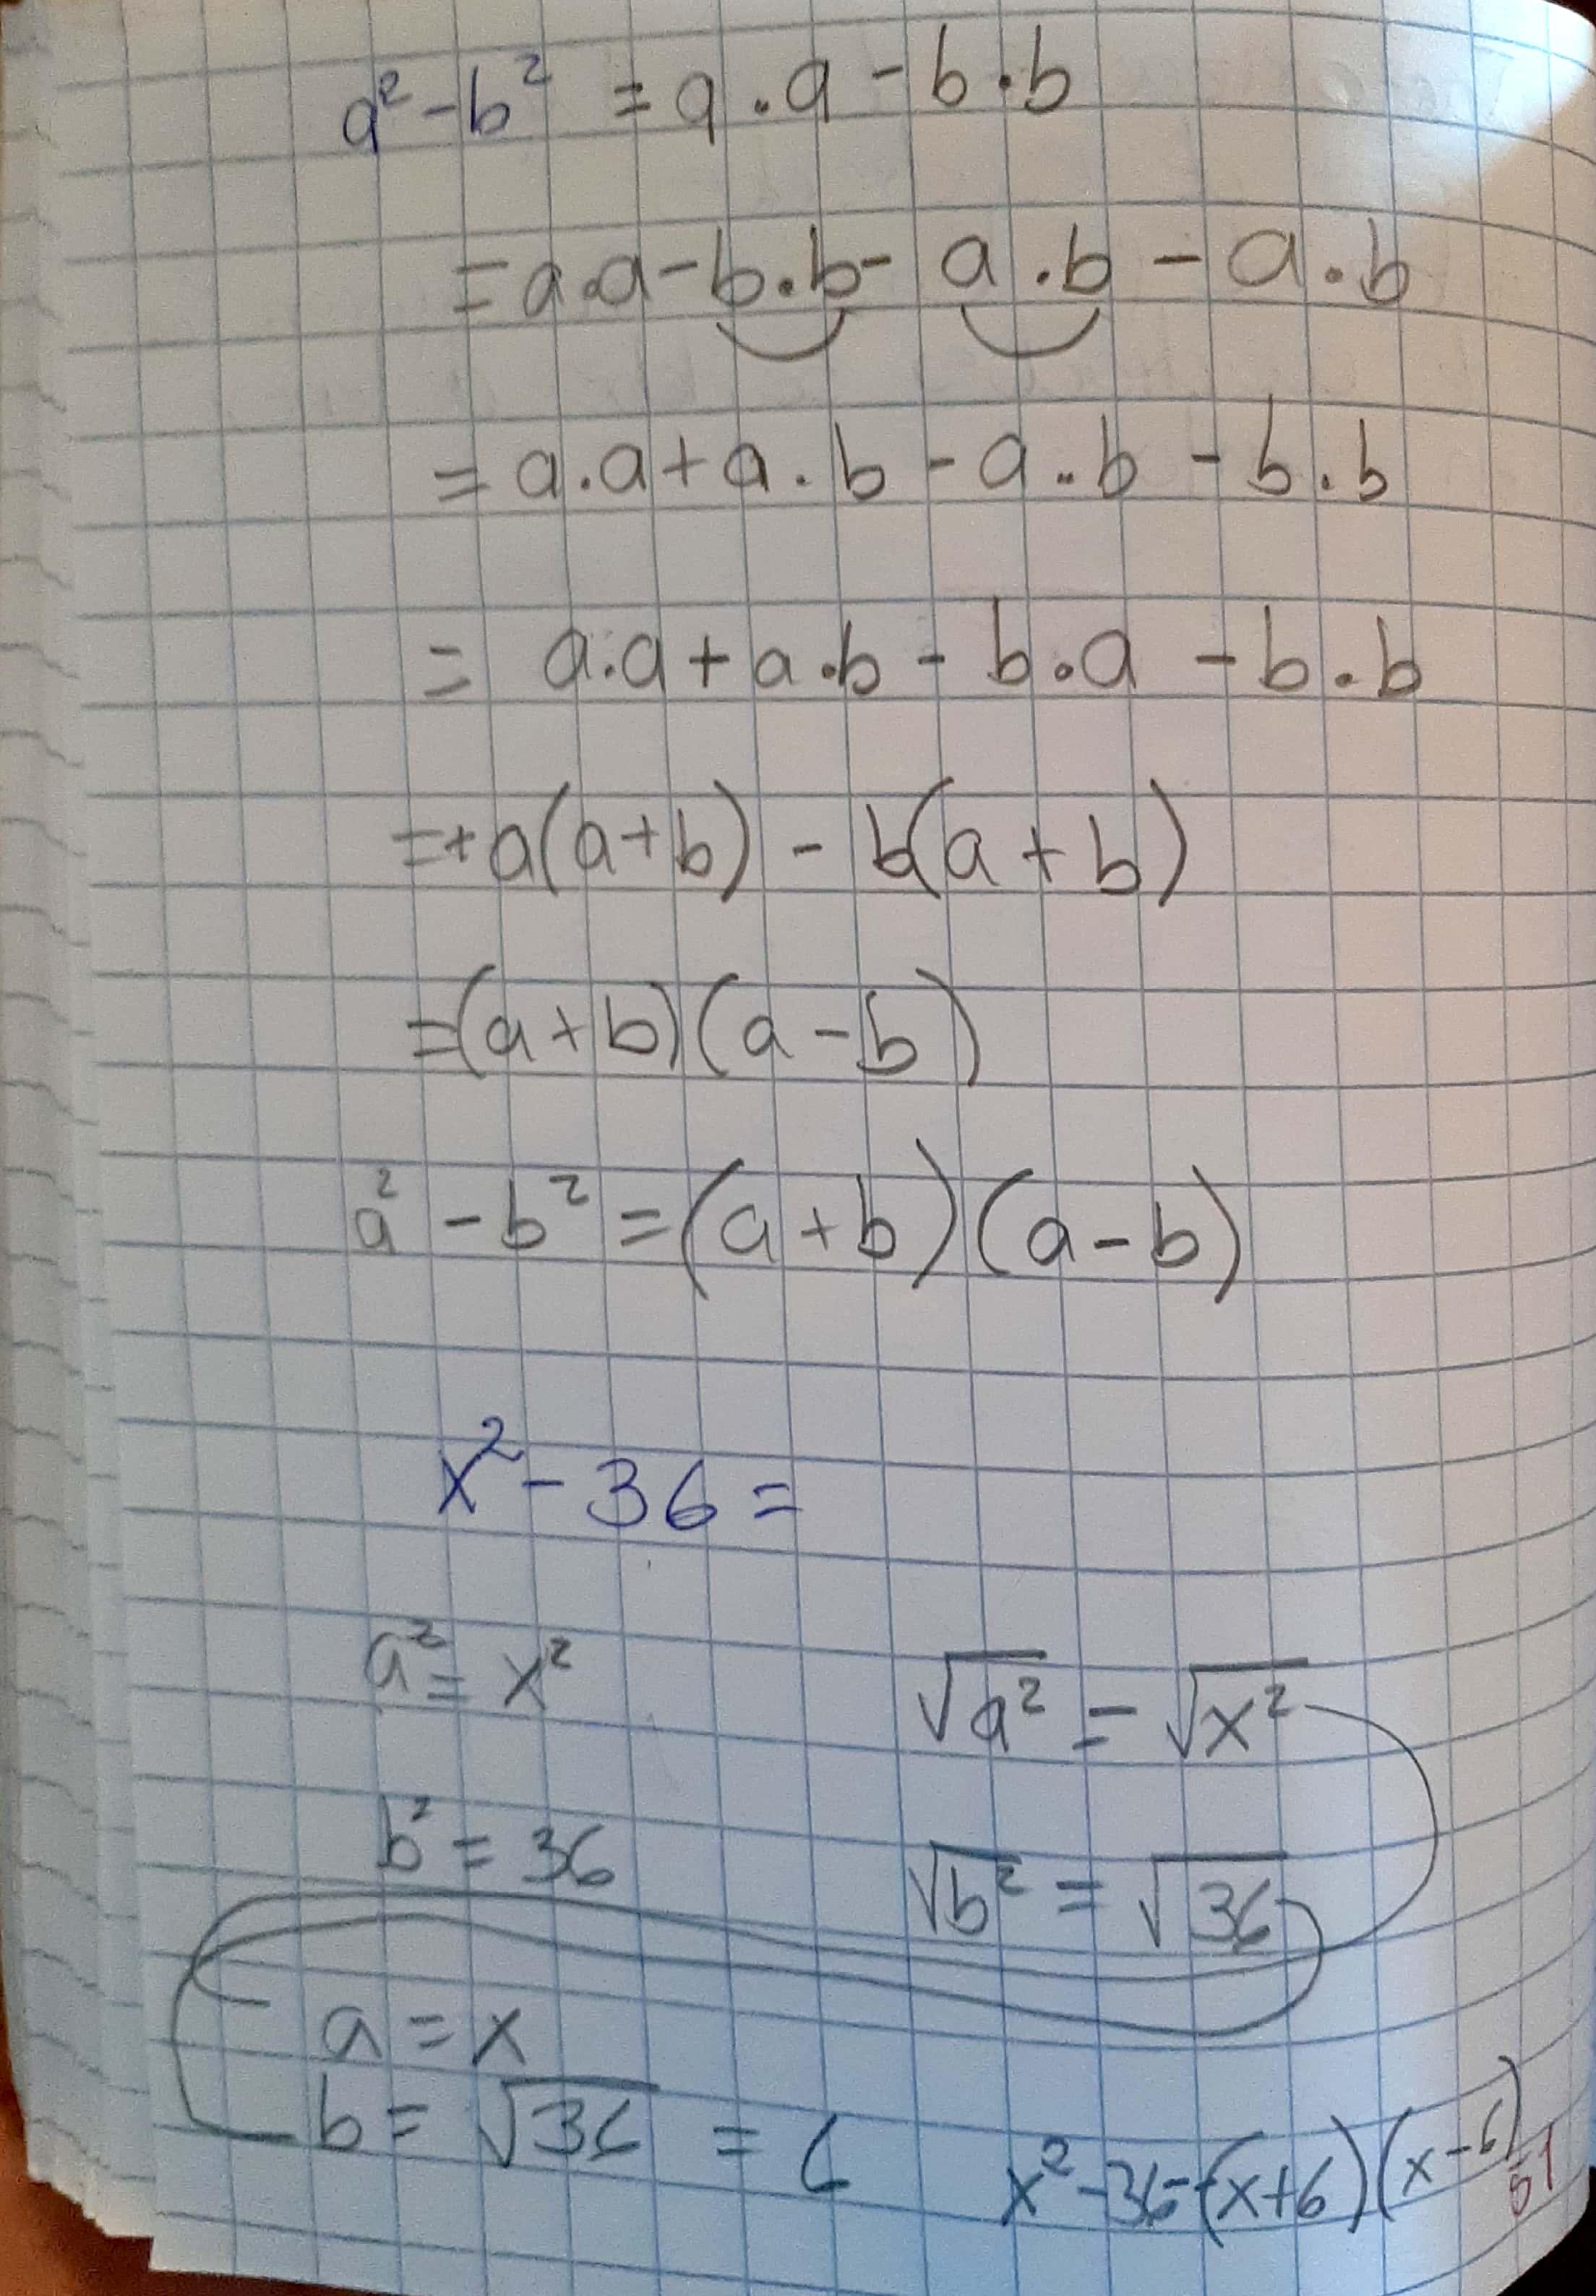 a² - b² = a · a - b · b
= a·a - b·b - a·b - a·b
= a·a + a·b - a·b - b·b
= a·a + a·b - b·a - b·b
= +a(a+b) - b(a+b)
= (a+b)(a-b)
a² - b² = (a+b)(a-b)
x² - 36 =
a² = x² √a² = √x²
b² = 36 √b² = √36
a = x
b = √36 = 6 x² - 36 = (x+6)(x-6)
51